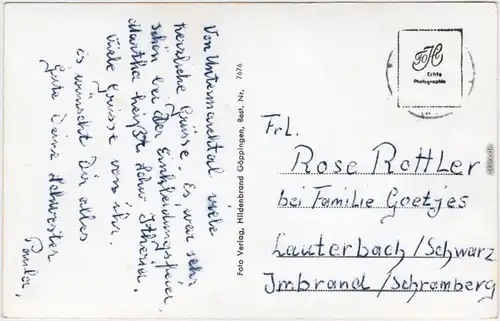 Von Untermarchtal viele
herzliche Grüsse. Es war sehr
schön bei der Einkleidungsfeier,
Martha heißt Schw.
Viele Grüsse von ihr.
Es wünscht Dir alles
Gute Deine Schwester
Paula.
Foto Verlag, Hildenbrand Göppingen, Best. Nr. 7676
FoH
Echte
Photographie
Frl.
Rose Rottler
bei Familie Goetjes
Lauterbach/Schwarz
Imbrand/Schramberg